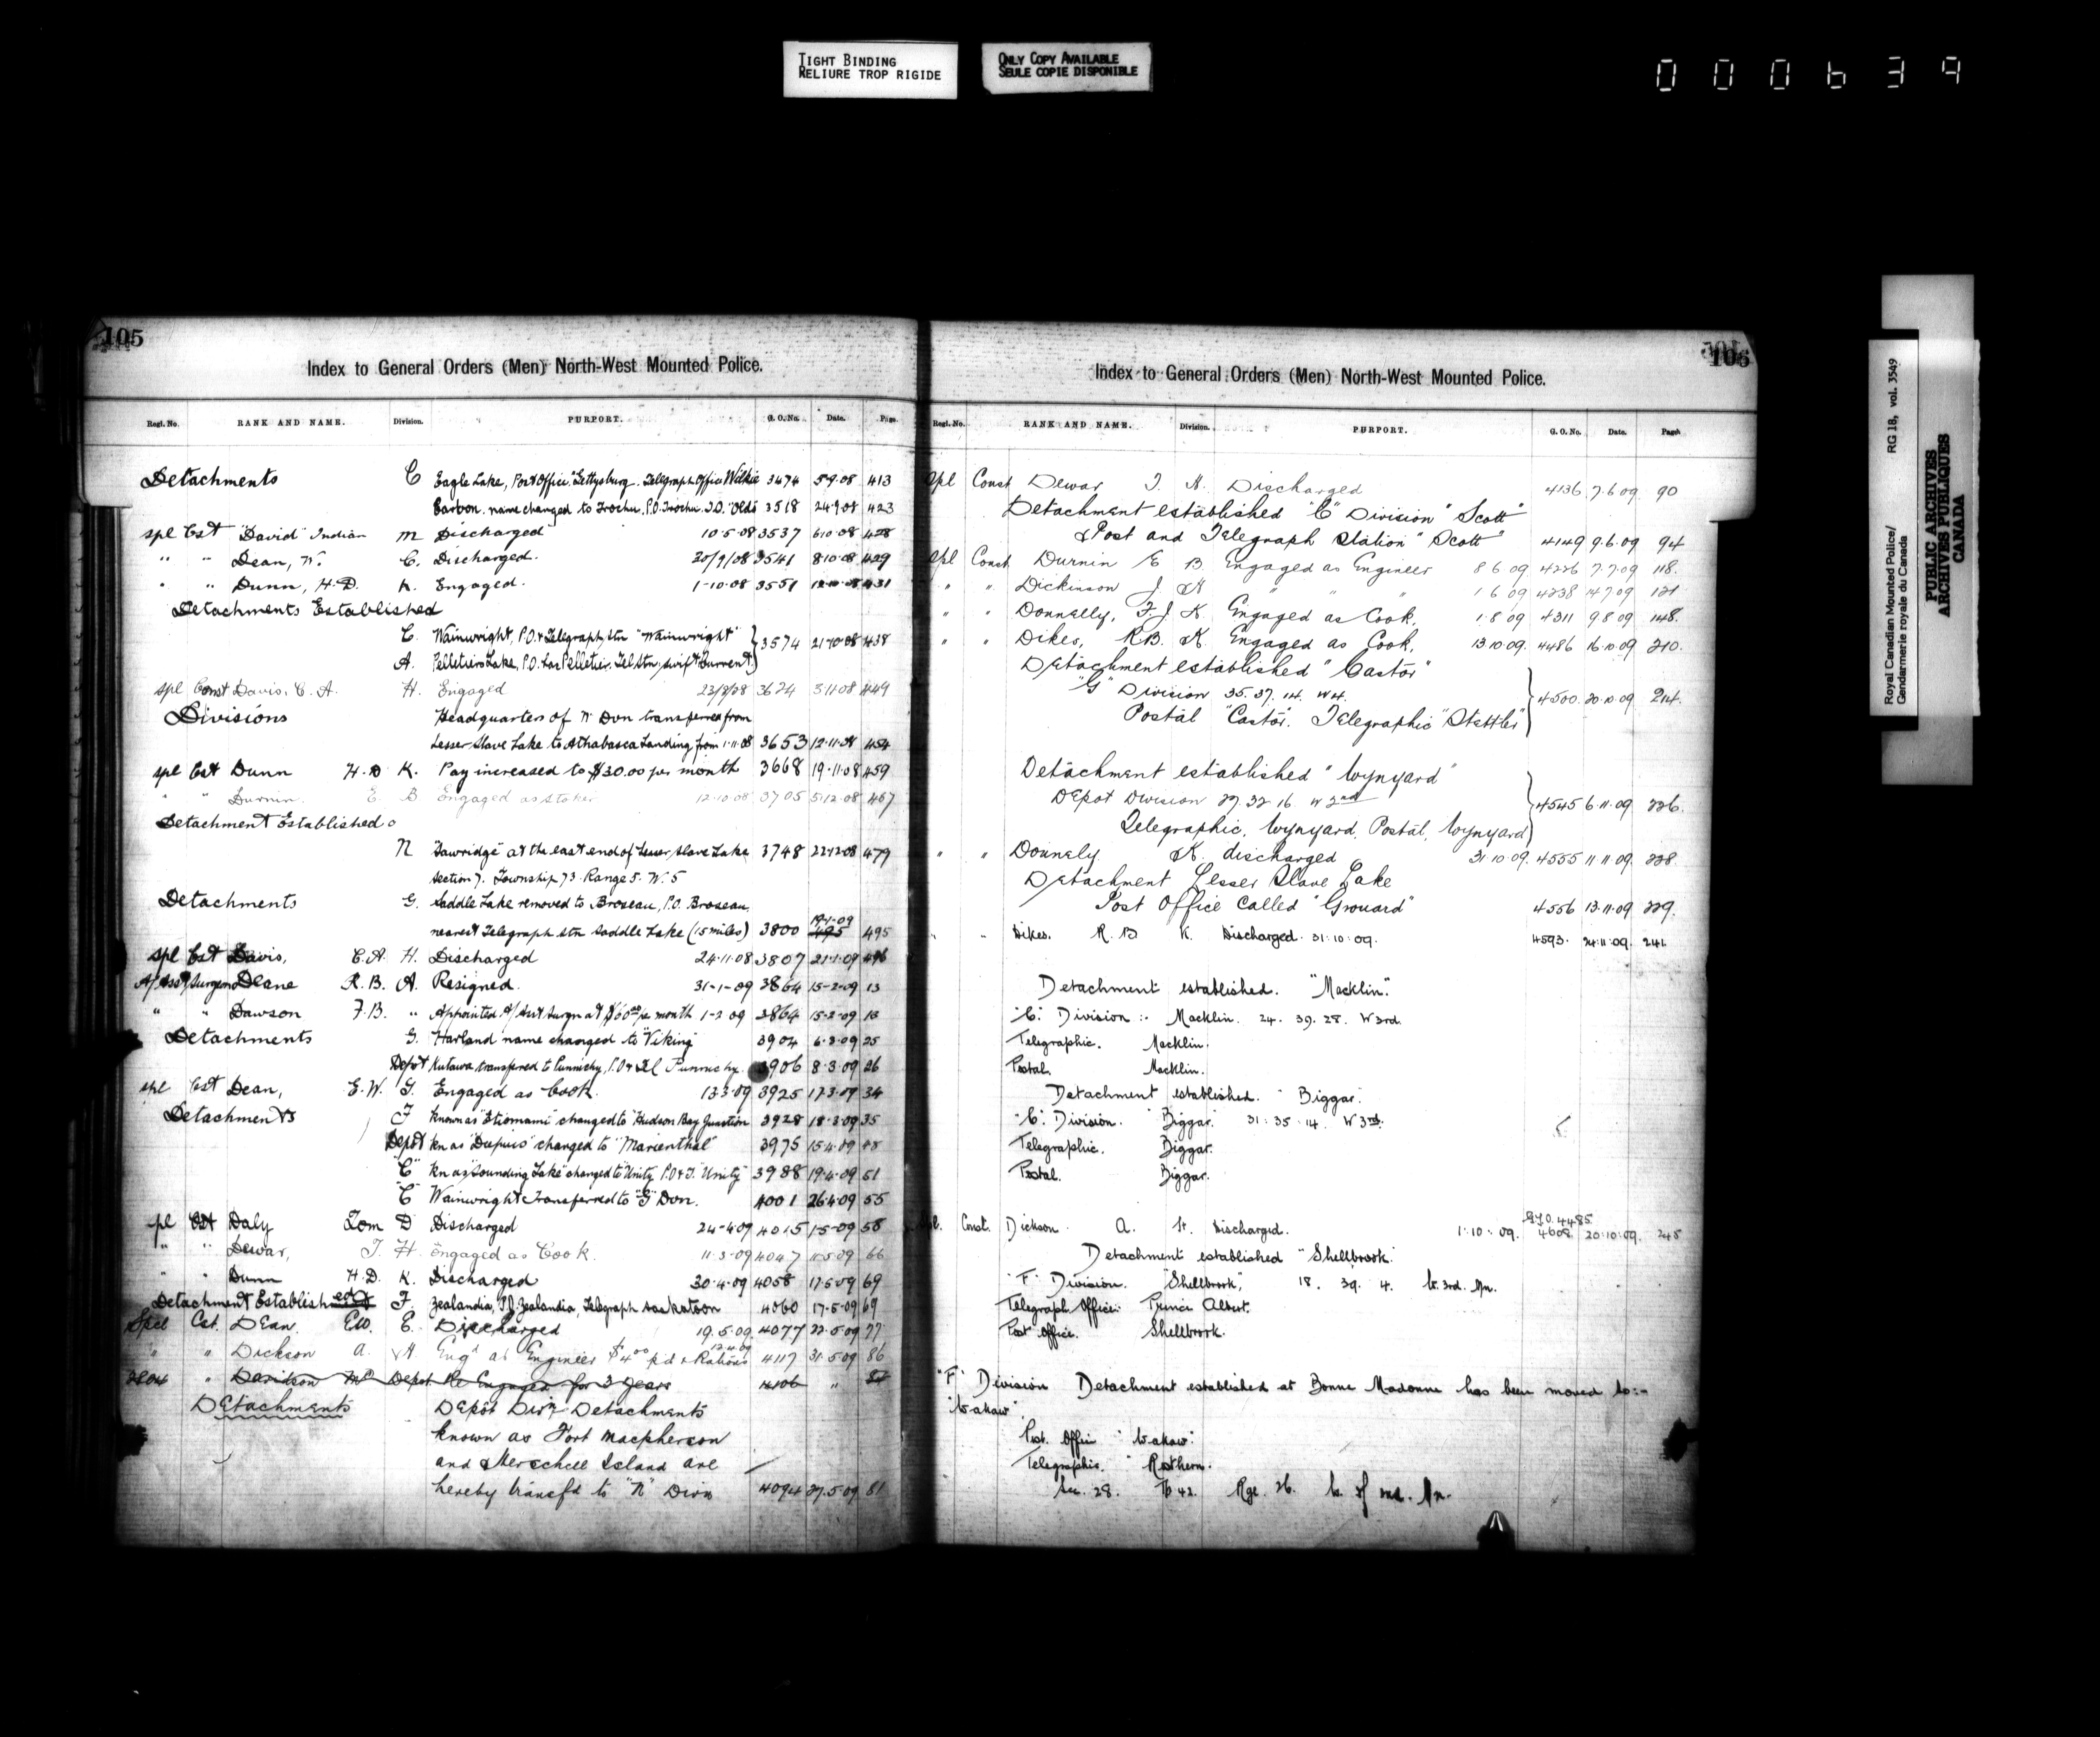 TIGHT BINDING
RELIURE TROP RIGIDE
ONLY COPY AVAILABLE
SEULE COPIE DISPONIBLE
000639
105
Index to General Orders (Men) North-West Mounted Police.
Regl. No. RANK AND NAME. Division. PURPORT. G. O. No. Date. Page.
Detachments C Eagle Lake, Post Office "Gettysburg. Telegraph Office Wilkie 3474 5·9·08 413
Carbon name changed to Trochu. P.O. Trochu. T.O. "Olds 3518 24·9·08 423
spl Cst "David" Indian M Discharged 10·5·08 3537 6·10·08 428
" " Dean, W. C. Discharged. 20/9/08 3541 8·10·08 429
" " Dunn, H.D. K. Engaged. 1-10-08 3551 12·10·08 431
Detachments Established
C. Wainwright, P.O. & Telegraph stn "Wainwright" } 3574 21·10·08 438
A. Pelletiers Lake, P.O. Lac Pelletier. Tel Stn, Swift Current
spl Const Davis, C. A. H. Engaged 23/8/08 3624 3·11·08 449
Divisions Headquarters of N Divn transferred from
Lesser Slave Lake to Athabasca Landing from 1·11·08 3653 12·11·08 454
spl Cst Dunn H.D K. Pay increased to $30.00 per month 3668 19·11·08 459
" " Durnin. E. B Engaged as stoker 12·10·08 3705 5·12·08 467
Detachment Established
N "Sawridge" at the east end of Lesser Slave Lake 3748 22·12·08 479
Section 7. Township 73. Range 5. W. 5
Detachments G. Saddle Lake removed to Broseau, P.O. Broseau,
nearest Telegraph stn Saddle Lake (15 miles) 3800 19-1-09 495 495
spl Cst Davis, C.A. H. Discharged 24·11·08 3807 21·1·09 496
A/Asst/Surgeon Deane R.B. A. Resigned. 31-1-09 3864 15-2-09 13
" " Dawson F.B. " Appointed A/Asst Surgn at $60.00 per month 1-2 09 3864 15·2·09 13
Detachments G. Harland name changed to "Viking" 3904 6·3·09 25
Depot Kutawa transferred to Punnichy, P.O & Tel Punnichy. 3906 8·3·09 26
spl Cst Dean, E.W. G. Engaged as Cook. 13·3·09 3925 17·3·09 34
Detachments F known as "Etiomami" changed to "Hudson Bay Junction 3928 18·3·09 35
Depot kn as "Dupuis" changed to "Marienthal" 3975 15·4·09 48
"C" kn as "Sounding Lake" changed to "Unity. P.O & T. "Unity" 3988 19·4·09 51
"C" Wainwright Transferred to "G" Divn. 4001 26·4·09 55
spl Cst Daly Tom D Discharged 24-4-09 4015 1-5-09 58
" " Dewar, T. H. Engaged as Cook. 11·3·09 4047 11·5·09 66
" " Dunn H.D. K. Discharged 30·4·09 4058 17·5·09 69
Detachment Established F Zealandia, P.O. Zealandia, Telegraph Saskatoon 4060 17·5·09 69
Spcl Cst. Dean. E.W. G. Discharged 19.5.09 4077 22·5·09 77
" " Dickson A. H Eng'd as Engineer $4.00 p.d & Rations 12·4·09 4117 31·5·09 86
" Davidson Depot. Re Engaged for 3 years 4106 "
Detachments Depot Div'n Detachments
known as Fort Macpherson
and Herschell Island are
hereby transf'd to "N" Divn 4094 27·5·09 81
106
Index to General Orders (Men) North-West Mounted Police.
Regl. No. RANK AND NAME. Division. PURPORT. G. O. No. Date. Page
Spl Const Dewar T. H. Discharged 4136 7·6·09 90
Detachment established "C" Division "Scott"
Post and Telegraph Station "Scott" 4149 9·6·09 94
Spl Const Durnin E B. Engaged as Engineer 8 6 09 4226 7·7·09 118.
" " Dickinson J H " " " 1 6 09 4238 14·7·09 121
" " Donnelly, F.J K. Engaged as Cook, 1·8 09 4311 9 8 09 148.
" " Dikes, R.B. K. Engaged as Cook, 13·10·09. 4486 16·10·09 210.
Detachment established "Castor"
"G" Division 35. 37. 14. W 4. } 4500 20·10·09 214.
Postal "Castor". Telegraphic "Stettler"
Detachment established "Wynyard"
Depot Division 27 32 16 W 2nd } 4545 6·11·09 226.
Telegraphic, Wynyard, Postal, Wynyard
" " Donnely. K. discharged 31 10·09. 4555 11·11·09. 228.
Detachment Lesser Slave Lake
Post Office called "Grouard" 4556 13·11·09 229.
" " Dikes. R. B K. Discharged. 31·10·09. 4593. 24·11·09. 241.
Detachment established. "Macklin".
"C". Division :- Macklin. 24. 39. 28. W 3rd.
Telegraphic. Macklin.
Postal. Macklin.
Detachment established. "Biggar."
"C". Division. "Biggar." 31 : 35 : 14. W 3rd.
Telegraphic. Biggar.
Postal. Biggar.
Spl. Const. Dickson. A. H. Discharged. 1:10:09. G.O. 4485. 4608. 20:10:09. 245
Detachment established "Shellbrook."
"F" Division. "Shellbrook", 18. 39. 4. W. 3rd. Mn.
Telegraph Office. Prince Albert.
Post Office. Shellbrook.
"F" Division Detachment established at Bonne Madonne has been moved to :-
"Wakaw"
Post. Office "Wakaw".
Telegraphic. "Rosthern.
Sec. 28. Tp 42. Rge. 26. W. of 2nd. Mn.
Royal Canadian Mounted Police/ RG 18, vol. 3549
Gendarmerie royale du Canada
PUBLIC ARCHIVES
ARCHIVES PUBLIQUES
CANADA